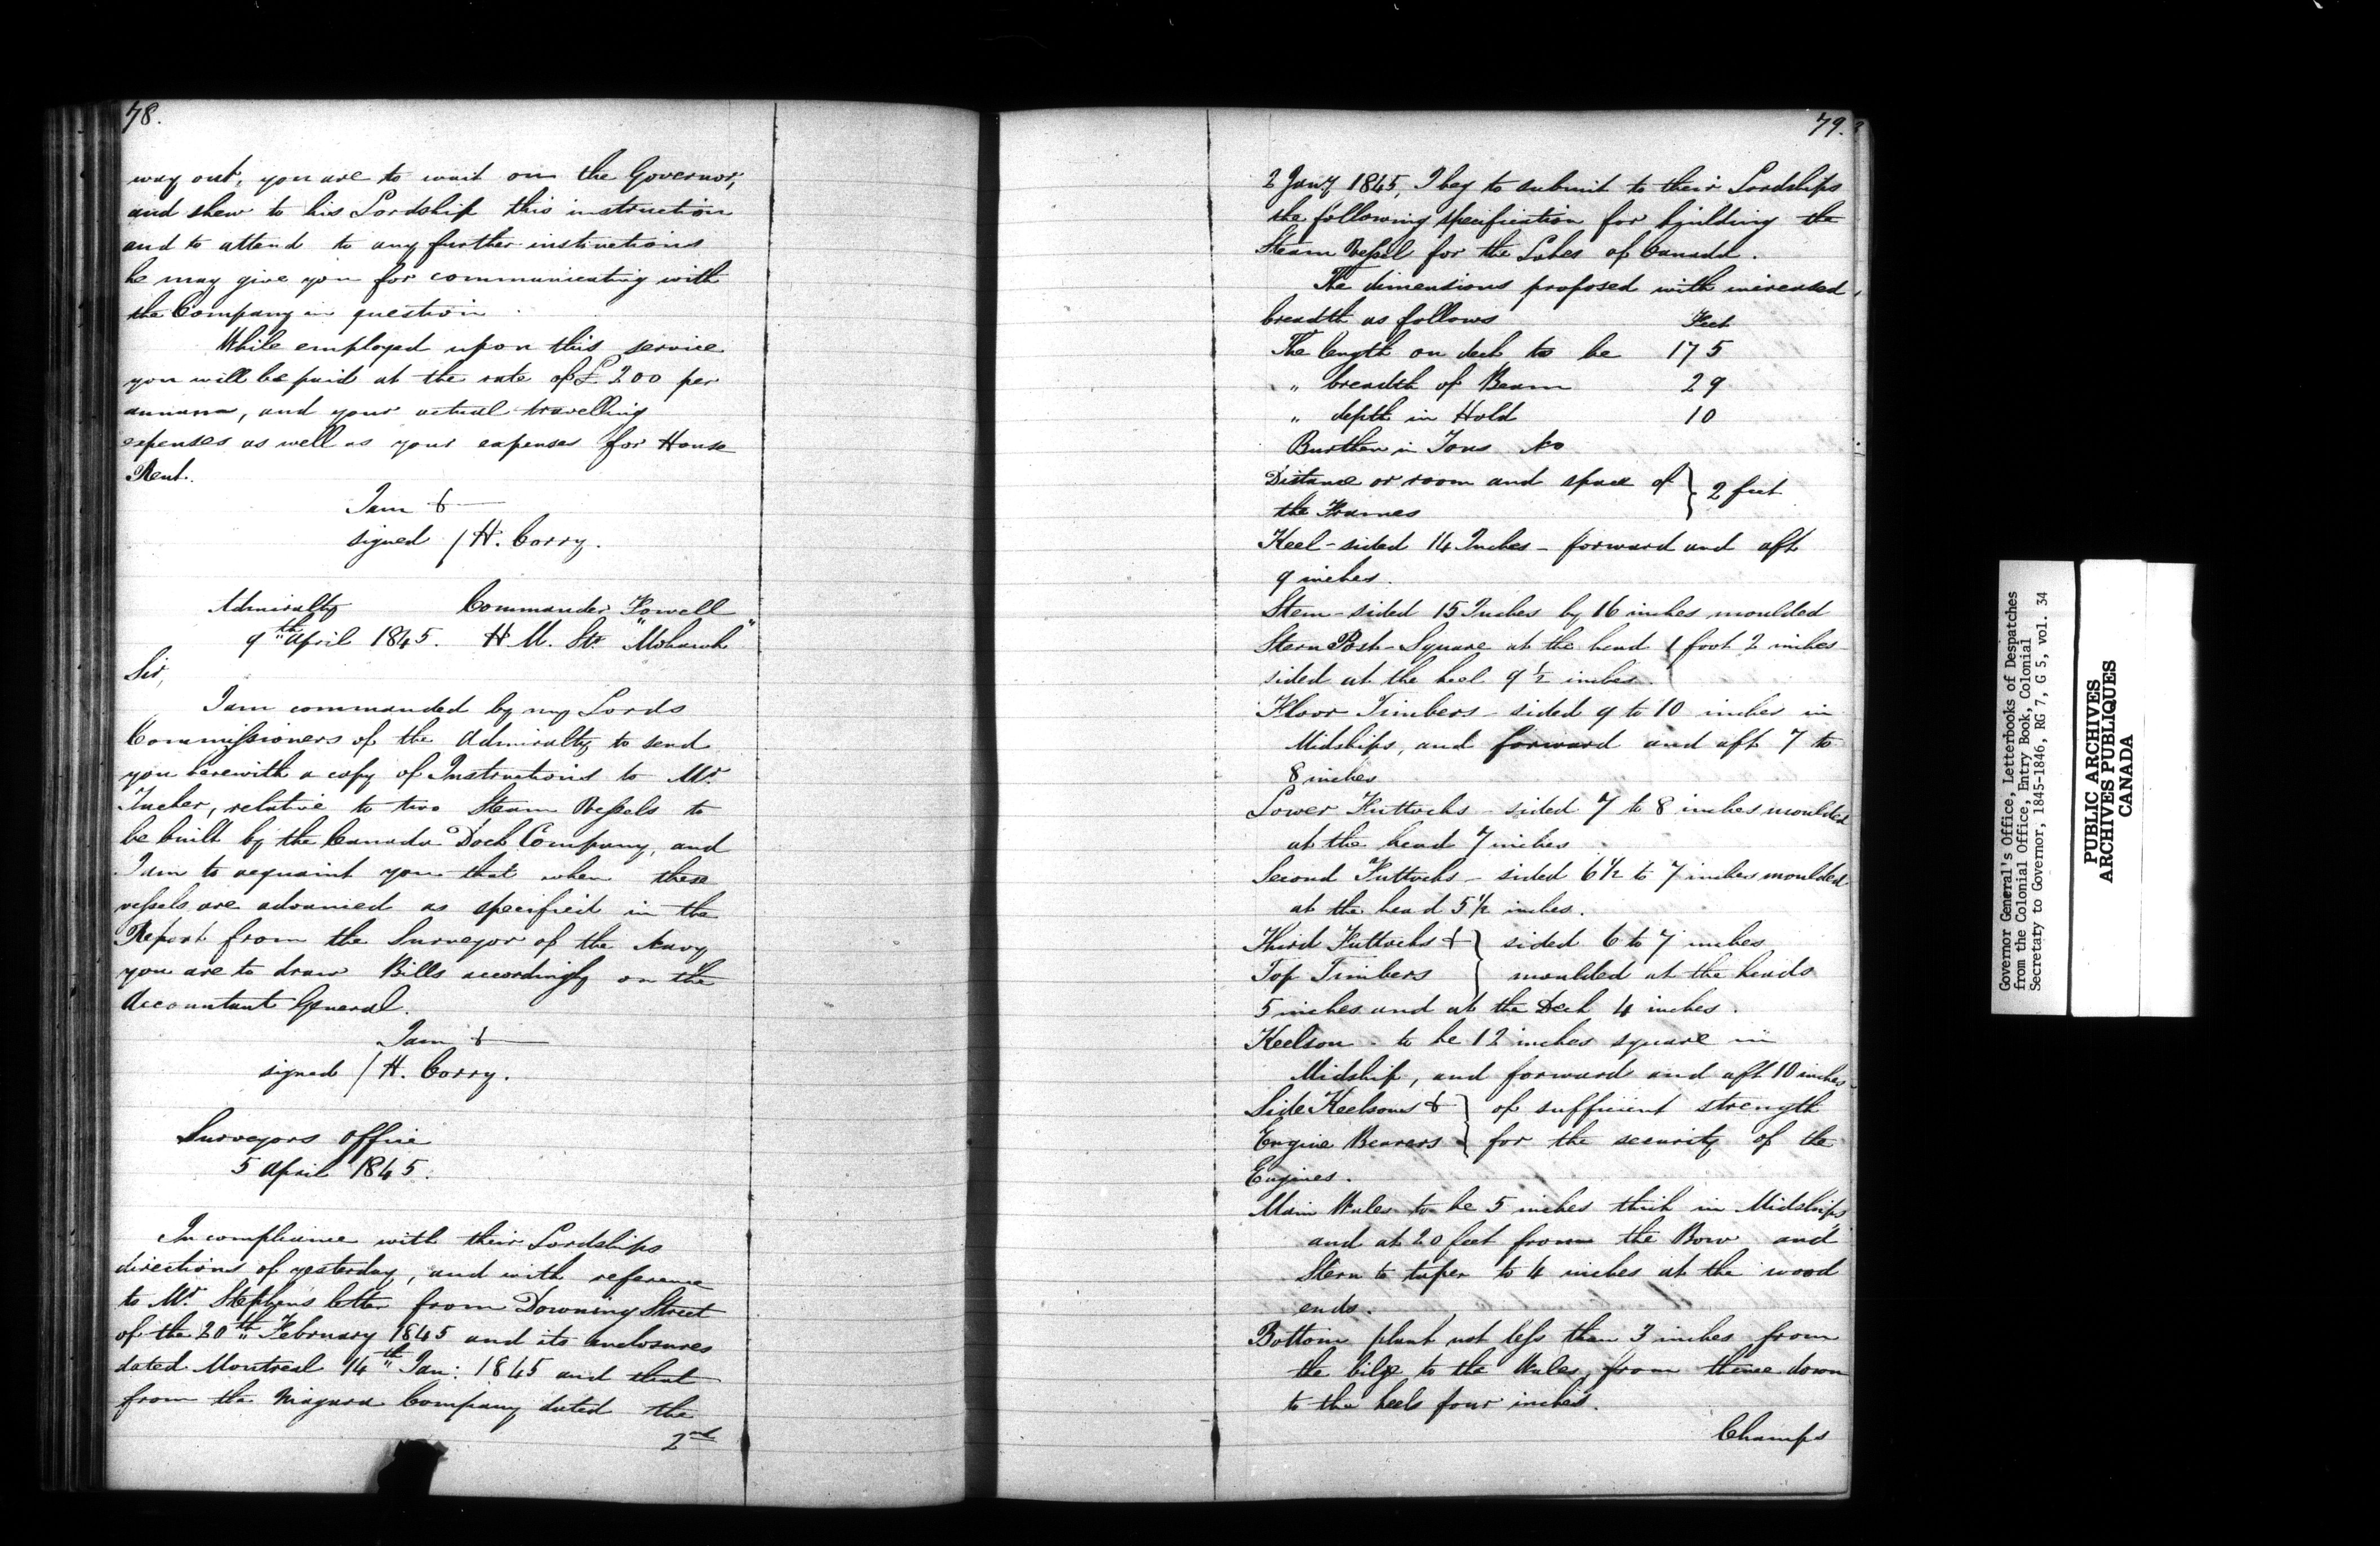 78.
way out, you are to wait on the Governor,
and shew to his Lordship this instruction
and to attend to any further instructions
he may give you for communicating with
the Company in question.
While employed upon this service
you will be paid at the rate of £200 per
annum, and your actual travelling
expenses as well as your expenses for House
Rent.
I am &
signed / H. Corry.
Admiralty Commander Fowell
9th April 1845. H.M. St. "Mohawk"
Sir,
I am commanded by my Lords
Commissioners of the Admiralty to send
you herewith a copy of Instructions to Mr
Tucker, relative to two Steam Vessels to
be built by the Canada Dock Company, and
I am to acquaint you that when these
vessels are advanced as specified in the
Report from the Surveyor of the Navy
you are to draw Bills accordingly on the
Accountant General.
I am &
signed / H. Corry.
Surveyors Office
5 April 1845.
In compliance with their Lordships
directions of yesterday, and with reference
to Mr Stephens letter from Downing Street
of the 20th February 1845 and its enclosures
dated Montreal 14th Jan: 1845 and that
from the Niagara Company dated the
2nd
79.
2 Jany 1845, I beg to submit to their Lordships
the following specification for building the
Steam Vessel for the Lakes of Canada.
The dimensions proposed with increased
breadth as follows Feet
The length on deck to be 175
" breadth of Beam 29
" depth in Hold 10
Burthen in Tons No
Distance or room and space of } 2 feet
the Frames
Keel - sided 14 Inches - forward and aft
9 inches.
Stem - sided 15 Inches by 16 inches moulded
Stern Post - Square at the head 1 foot 2 inches
sided at the heel 9 1/2 inches.
Floor Timbers - sided 9 to 10 inches in
Midships, and forward and aft 7 to
8 inches
Lower Futtocks - sided 7 to 8 inches moulded
at the head 7 inches.
Second Futtocks - sided 6 1/2 to 7 inches moulded
at the head 5 1/2 inches.
Third Futtocks & } sided 6 to 7 inches
Top Timbers } moulded at the heads
5 inches and at the Deck 4 inches.
Keelson - to be 12 inches square in
Midship, and forward and aft 10 inches
Side Keelsons & } of sufficient strength
Engine Bearers } for the security of the
Engines.
Main Wales to be 5 inches thick in Midships
and at 20 feet from the Bow and
Stern to taper to 4 inches at the wood
ends.
Bottom plank not less than 3 inches from
the bilge to the Wales, from thence down
to the heels four inches.
Champs
Governor General's Office, Letterbooks of Despatches
from the Colonial Office, Entry Book, Colonial
Secretary to Governor, 1845-1846, RG 7, G 5, vol. 34
PUBLIC ARCHIVES
ARCHIVES PUBLIQUES
CANADA